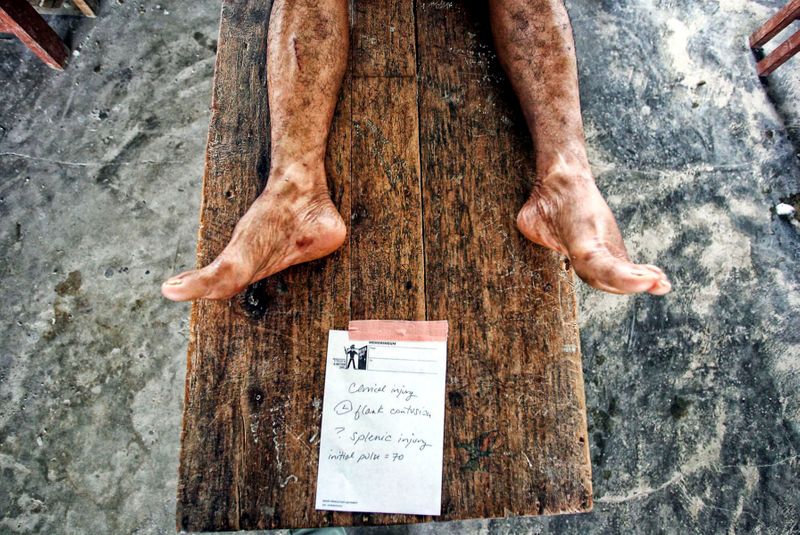 MEMORANDUM
Cervical injury
(L) flank contusion
? splenic injury
initial pulse = 70